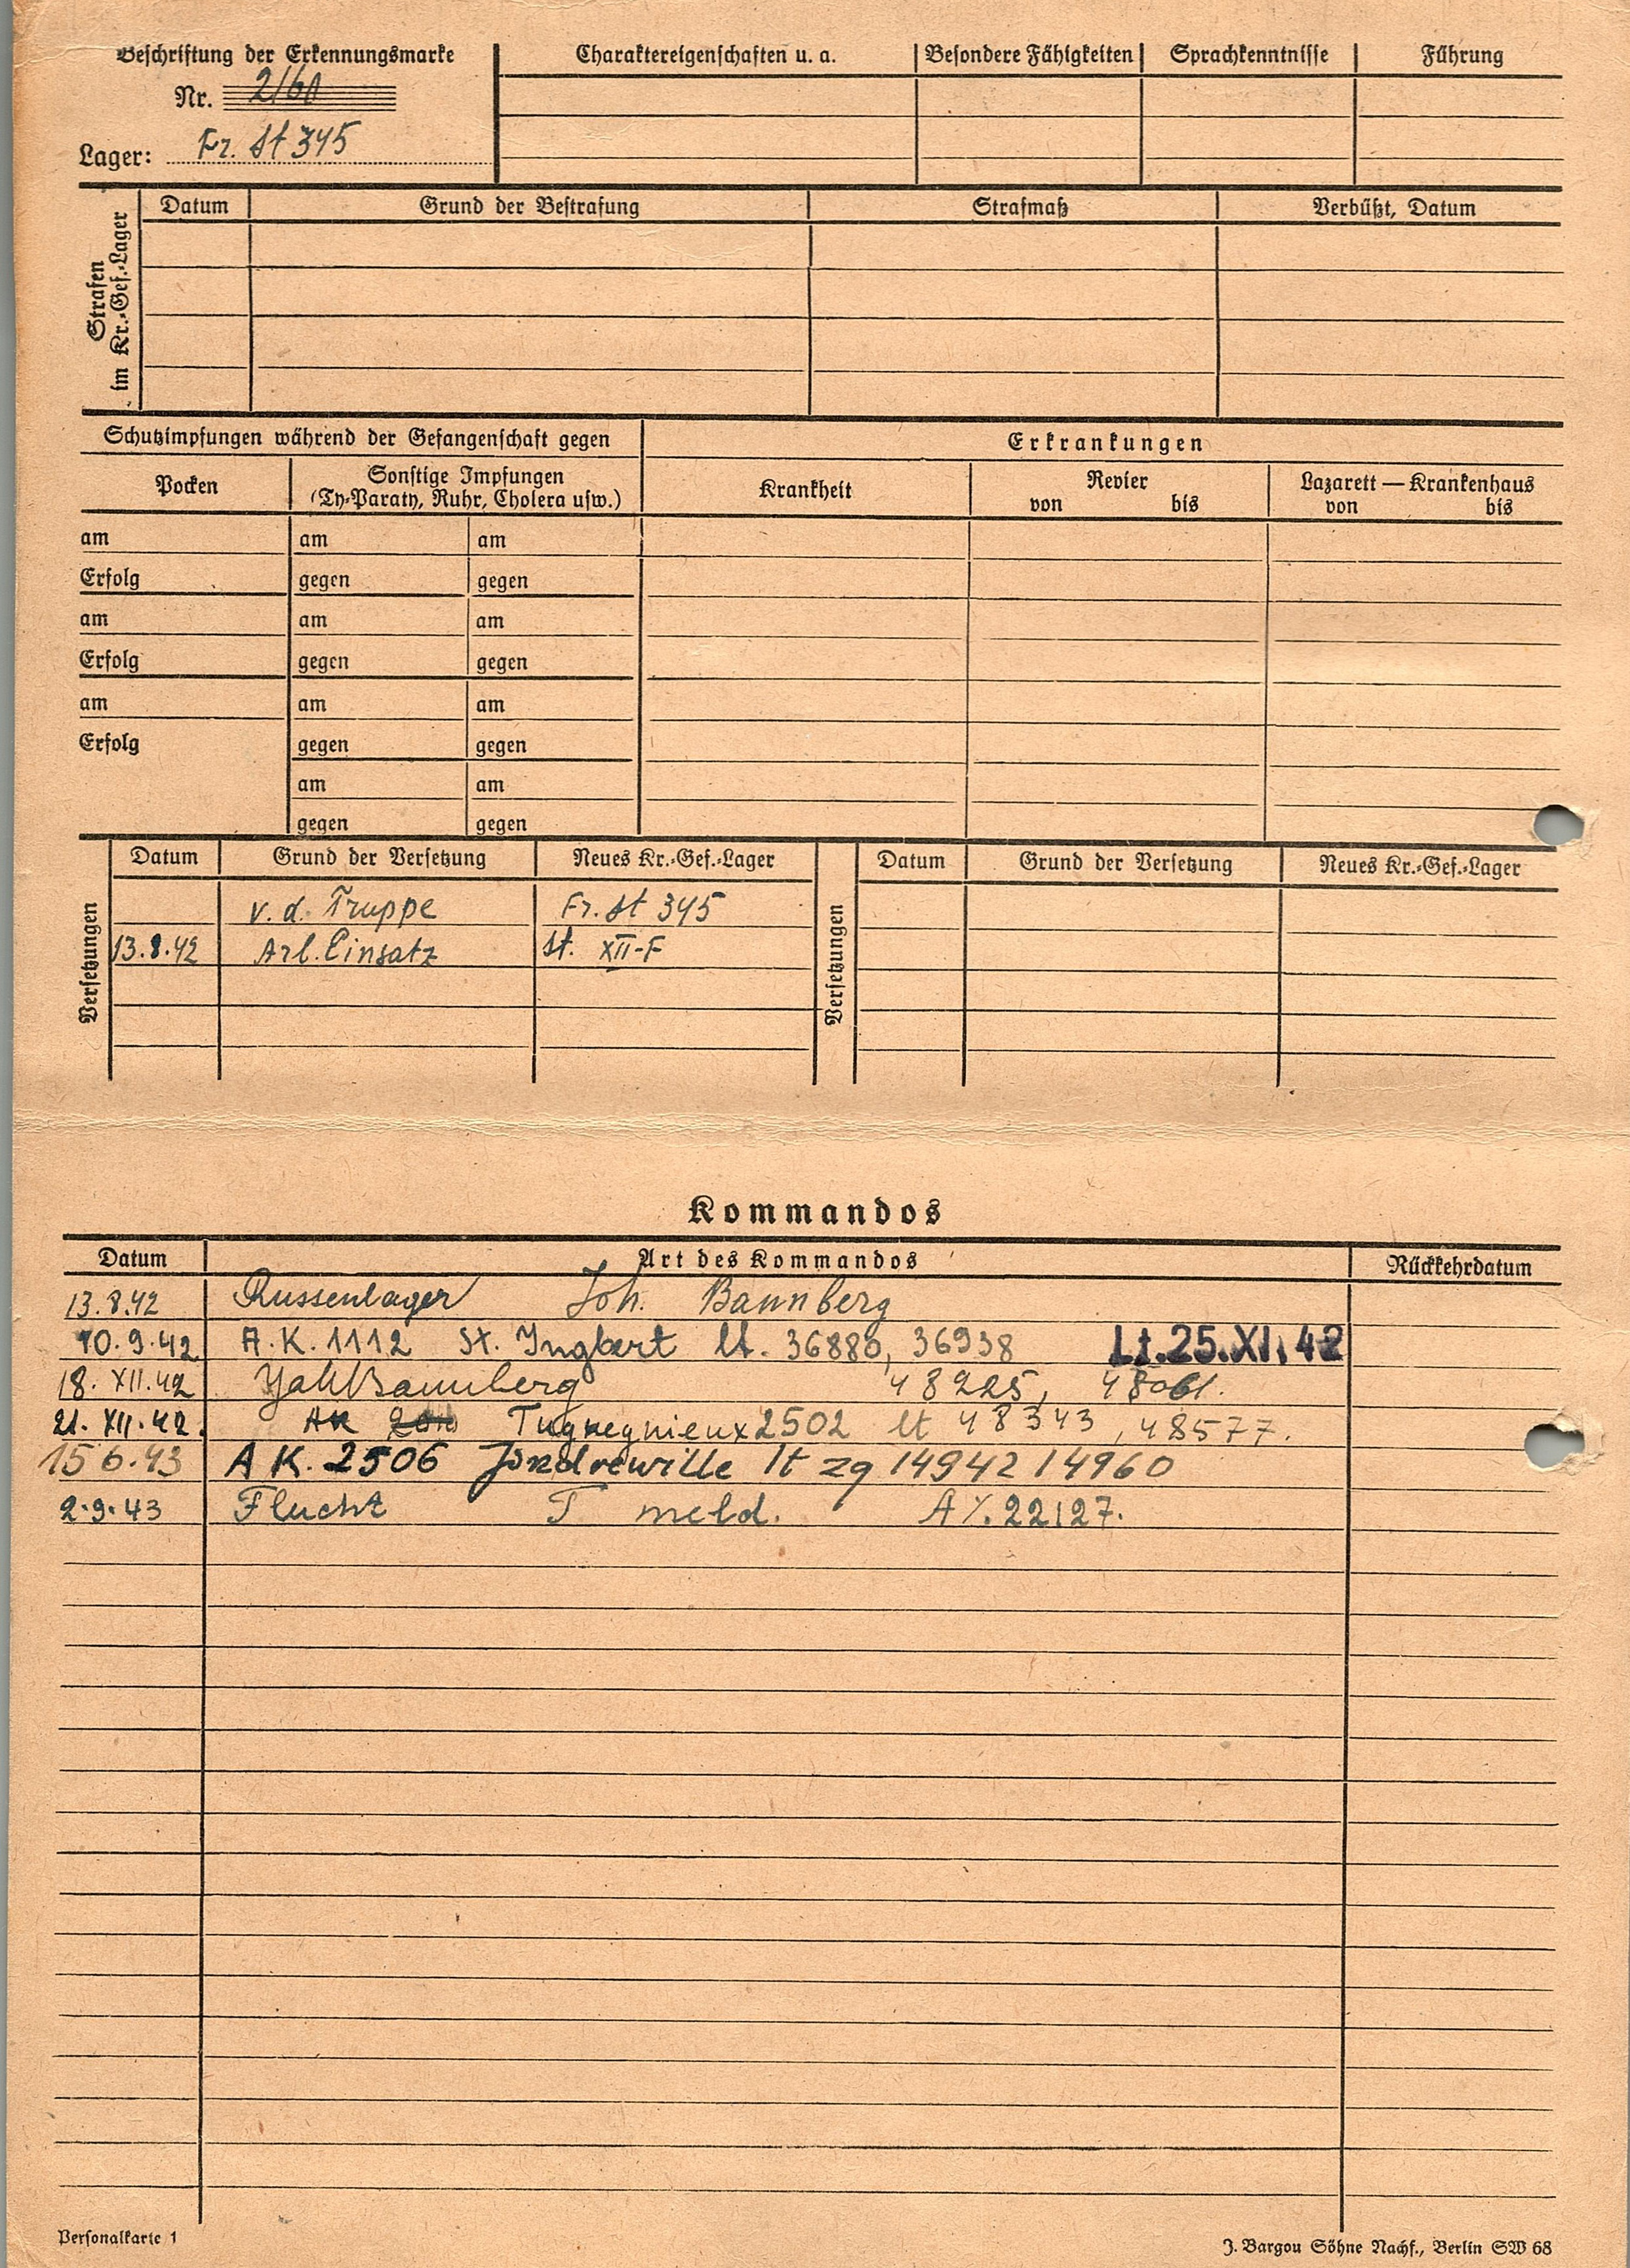 Beschriftung der Erkennungsmarke
Nr. 2160
Lager: Fr. St 345
Charaktereigenschaften u. a.
Besondere Fähigkeiten
Sprachkenntnisse
Führung
Strafen im Kr.-Gef.-Lager
Datum
Grund der Bestrafung
Strafmaß
Verbüßt, Datum
Schutzimpfungen während der Gefangenschaft gegen
Erkrankungen
Pocken
Sonstige Impfungen
(Ty-Paraty, Ruhr, Cholera usw.)
Krankheit
Revier
von bis
Lazarett — Krankenhaus
von bis
am am am
Erfolg gegen gegen
am am am
Erfolg gegen gegen
am am am
Erfolg gegen gegen
am am
gegen gegen
Versetzungen
Datum Grund der Versetzung Neues Kr.-Gef.-Lager
v. d. Truppe Fr. St 345
13.8.42 Arb. Einsatz St. XII-F
Versetzungen
Datum Grund der Versetzung Neues Kr.-Gef.-Lager
Kommandos
Datum Art des Kommandos Rückkehrdatum
13.8.42 Russenlager Joh. Bannberg
10.9.42 A.K. 1112 St. Ingbert lt. 36880, 36938 Lt. 25. XI. 42
18. XII. 42 Joh Bannberg 48225, 48061.
21. XII. 42. AK 2502 lt 48343, 48577.
15 6.43 A K. 2506 Jondreville lt zg 14942 14960
2.9.43 Flucht T meld. 22127.
Personalkarte 1
J. Bargou Söhne Nachf., Berlin SW 68